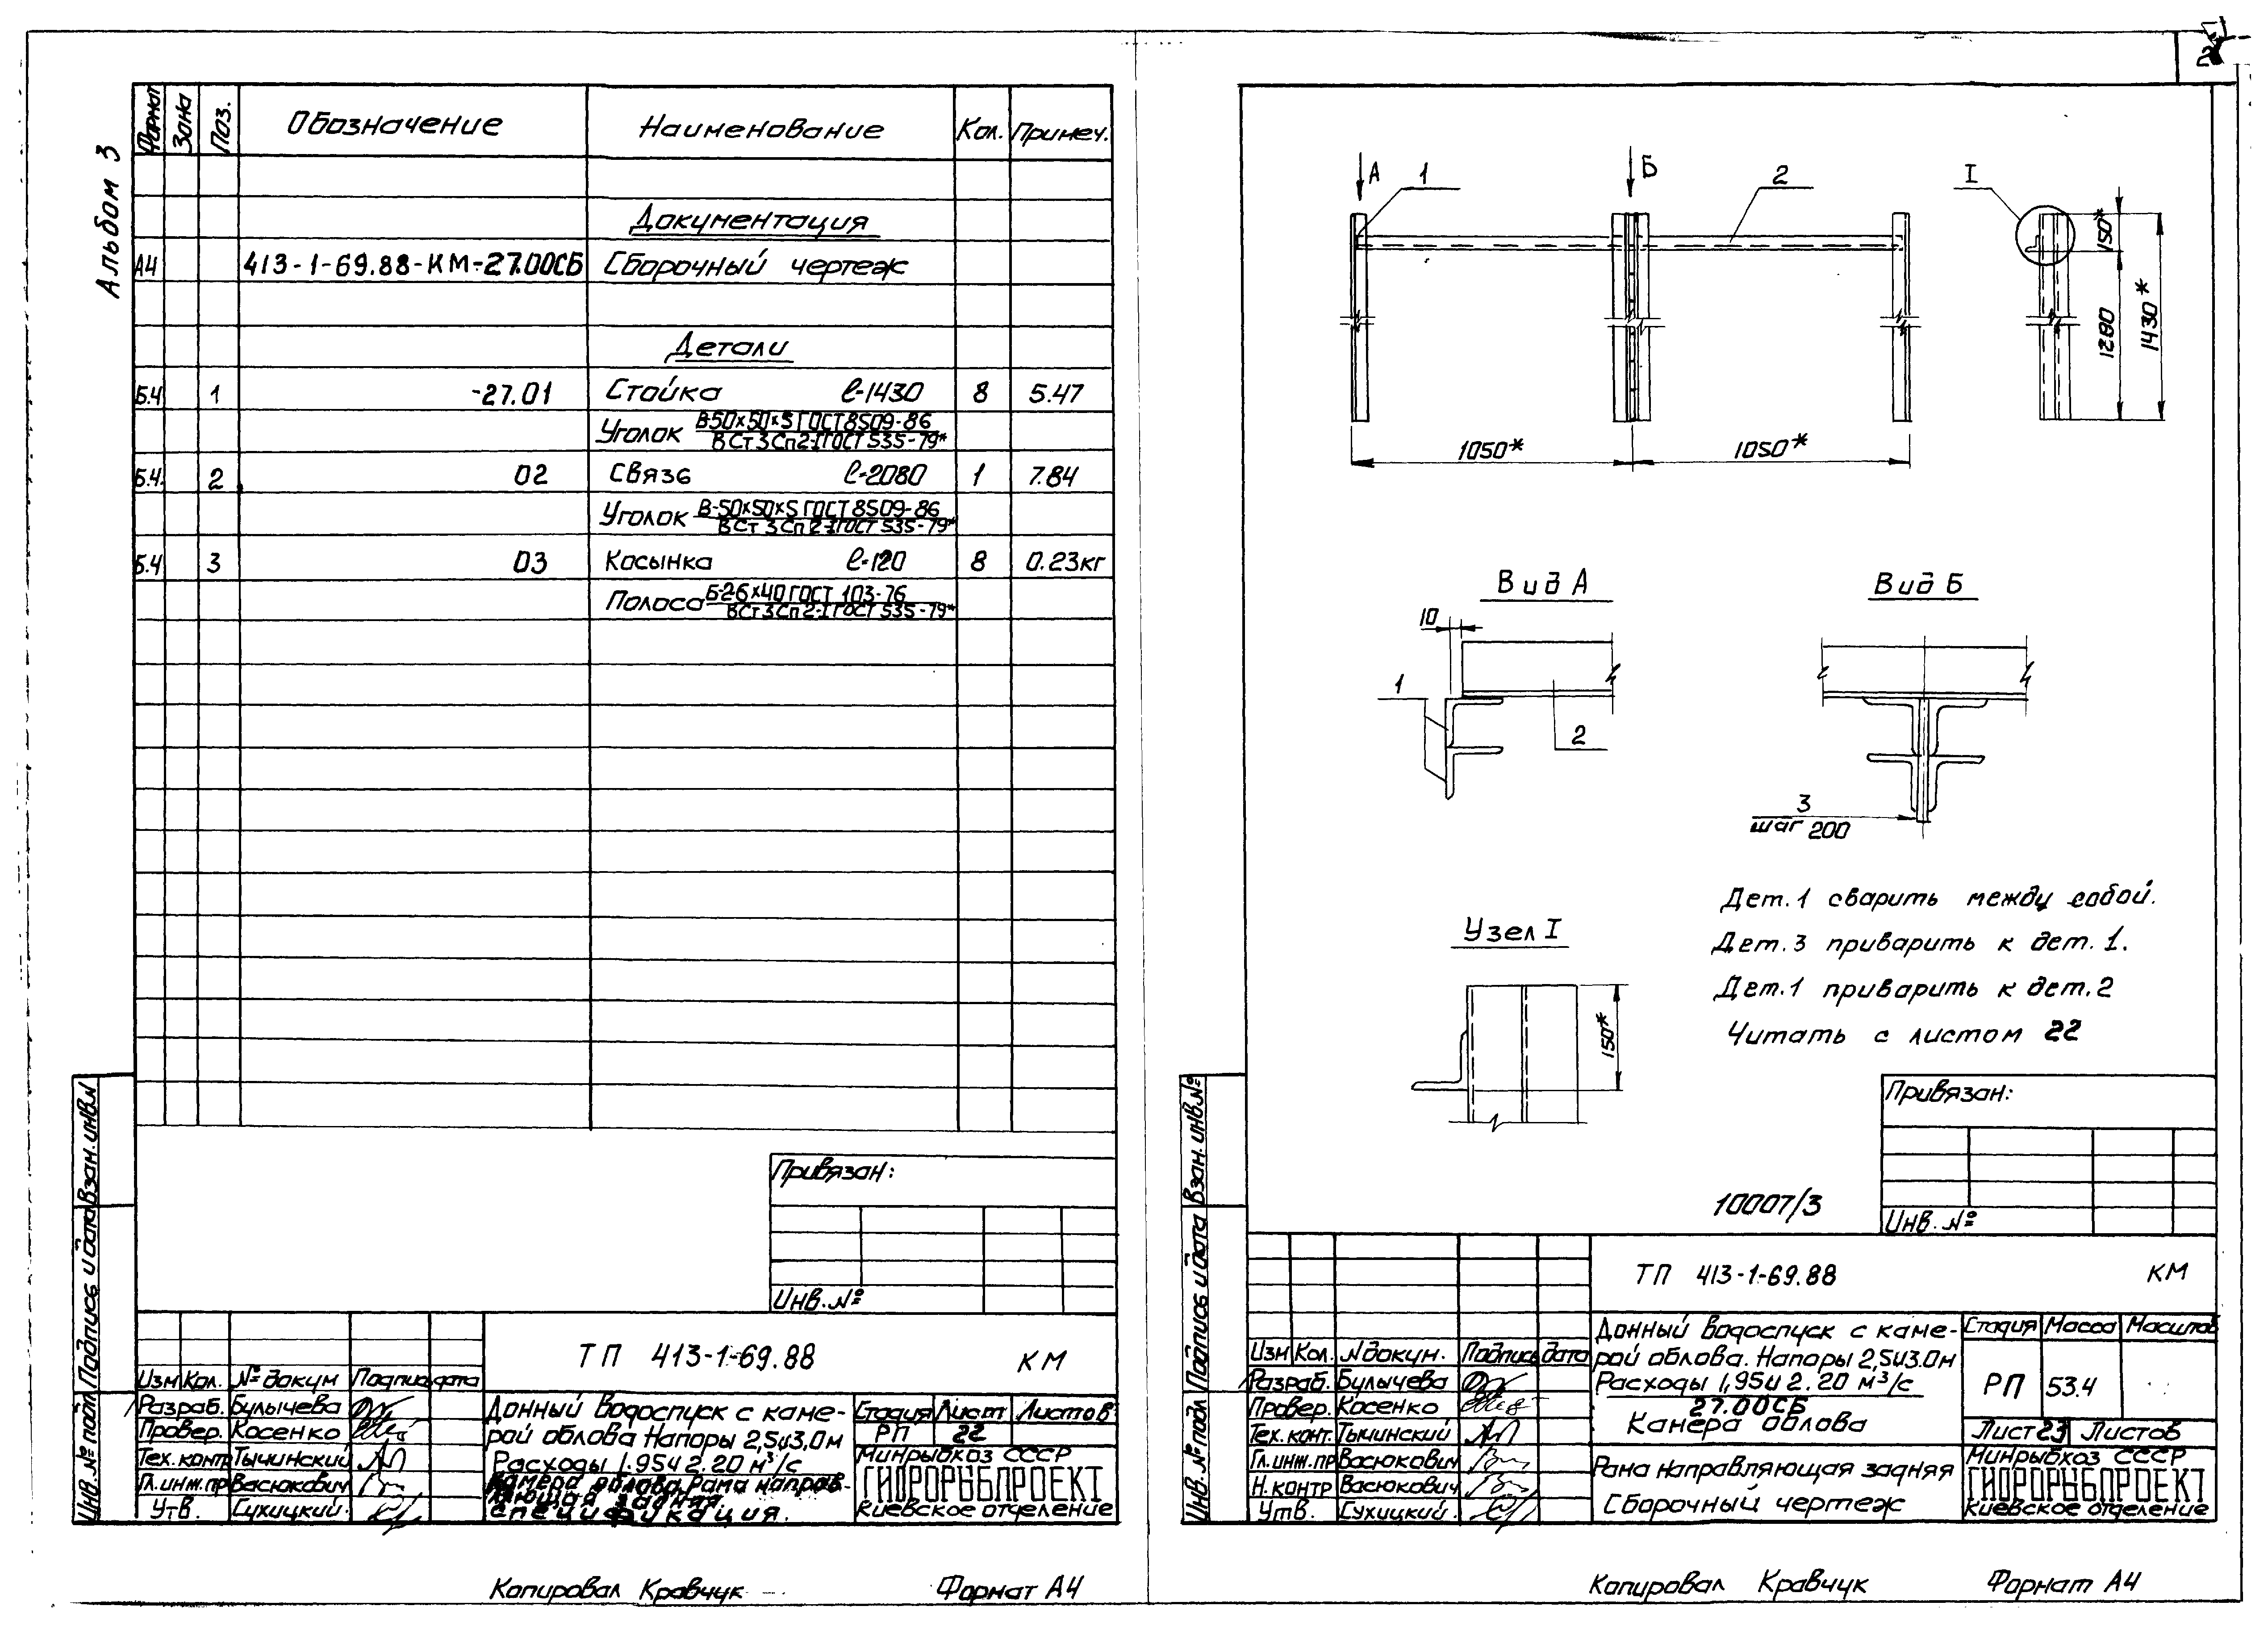 Альбом 3
Формат Зона Поз. Обозначение Наименование Кол. Примеч.
Документация
А4 413-1-69.88-КМ-27.00СБ Сборочный чертеж
Детали
Б.Ч 1 -27.01 Стойка ℓ-1430 8 5.47
Уголок В-50×50×5 ГОСТ 8509-86
ВСт3Сп2-I ГОСТ 535-79*
Б.Ч. 2 02 Связь ℓ-2080 1 7.84
Уголок В-50×50×5 ГОСТ 8509-86
ВСт3Сп2-I ГОСТ 535-79*
Б.Ч 3 03 Косынка ℓ-120 8 0.23кг
Полоса Б-2-6×40 ГОСТ 103-76
ВСт3Сп2-I ГОСТ 535-79*
Инв. № подл Подпись и дата Взан. инв.N
Привязан:
Инв. №
ТП 413-1-69.88 КМ
Изм Кол. № докум Подпись дата
Разраб. Булычева
Провер. Косенко
Тех. контр Тычинский
Гл. инж. пр Васюкович
Утв. Сухицкий
Донный водоспуск с каме-
рой облова Напоры 2,5и3,0м
Расходы 1.95и 2.20 м³/с
Камера облова Рама направ-
ляющая задняя.
Спецификация.
Стадия Лист Листов
РП 22
Минрыбхоз СССР
ГИДРОРЫБПРОЕКТ
Киевское отделение
Копировал Кравчук Формат А4
А 1 Б 2 I
150*
1280
1430*
1050* 1050*
Вид А Вид Б
10
1
2
3
шаг 200
Узел I
150*
Дет. 1 сварить между собой.
Дет. 3 приварить к дет. 1.
Дет. 1 приварить к дет. 2
Читать с листом 22
Привязан:
Инв. №
10007/3
Инв. № подл Подпись и дата Взан. инв. №
ТП 413-1-69.88 КМ
Изм Кол. N докум. Подпись дата
Разраб. Булычева
Провер. Косенко
Тех. конт. Тычинский
Гл. инж. пр Васюкович
Н. контр Васюкович
Утв. Сухицкий.
Донный водоспуск с каме-
рой облова. Напоры 2,5и3.0м
Расходы 1,95и 2.20 м³/с
27.00СБ
Камера облова
Рама направляющая задняя
Сборочный чертеж
Стадия Масса Масштаб
РП 53.4
Лист 23 Листов
Минрыбхоз СССР
ГИДРОРЫБПРОЕКТ
Киевское отделение
Копировал Кравчук Формат А4